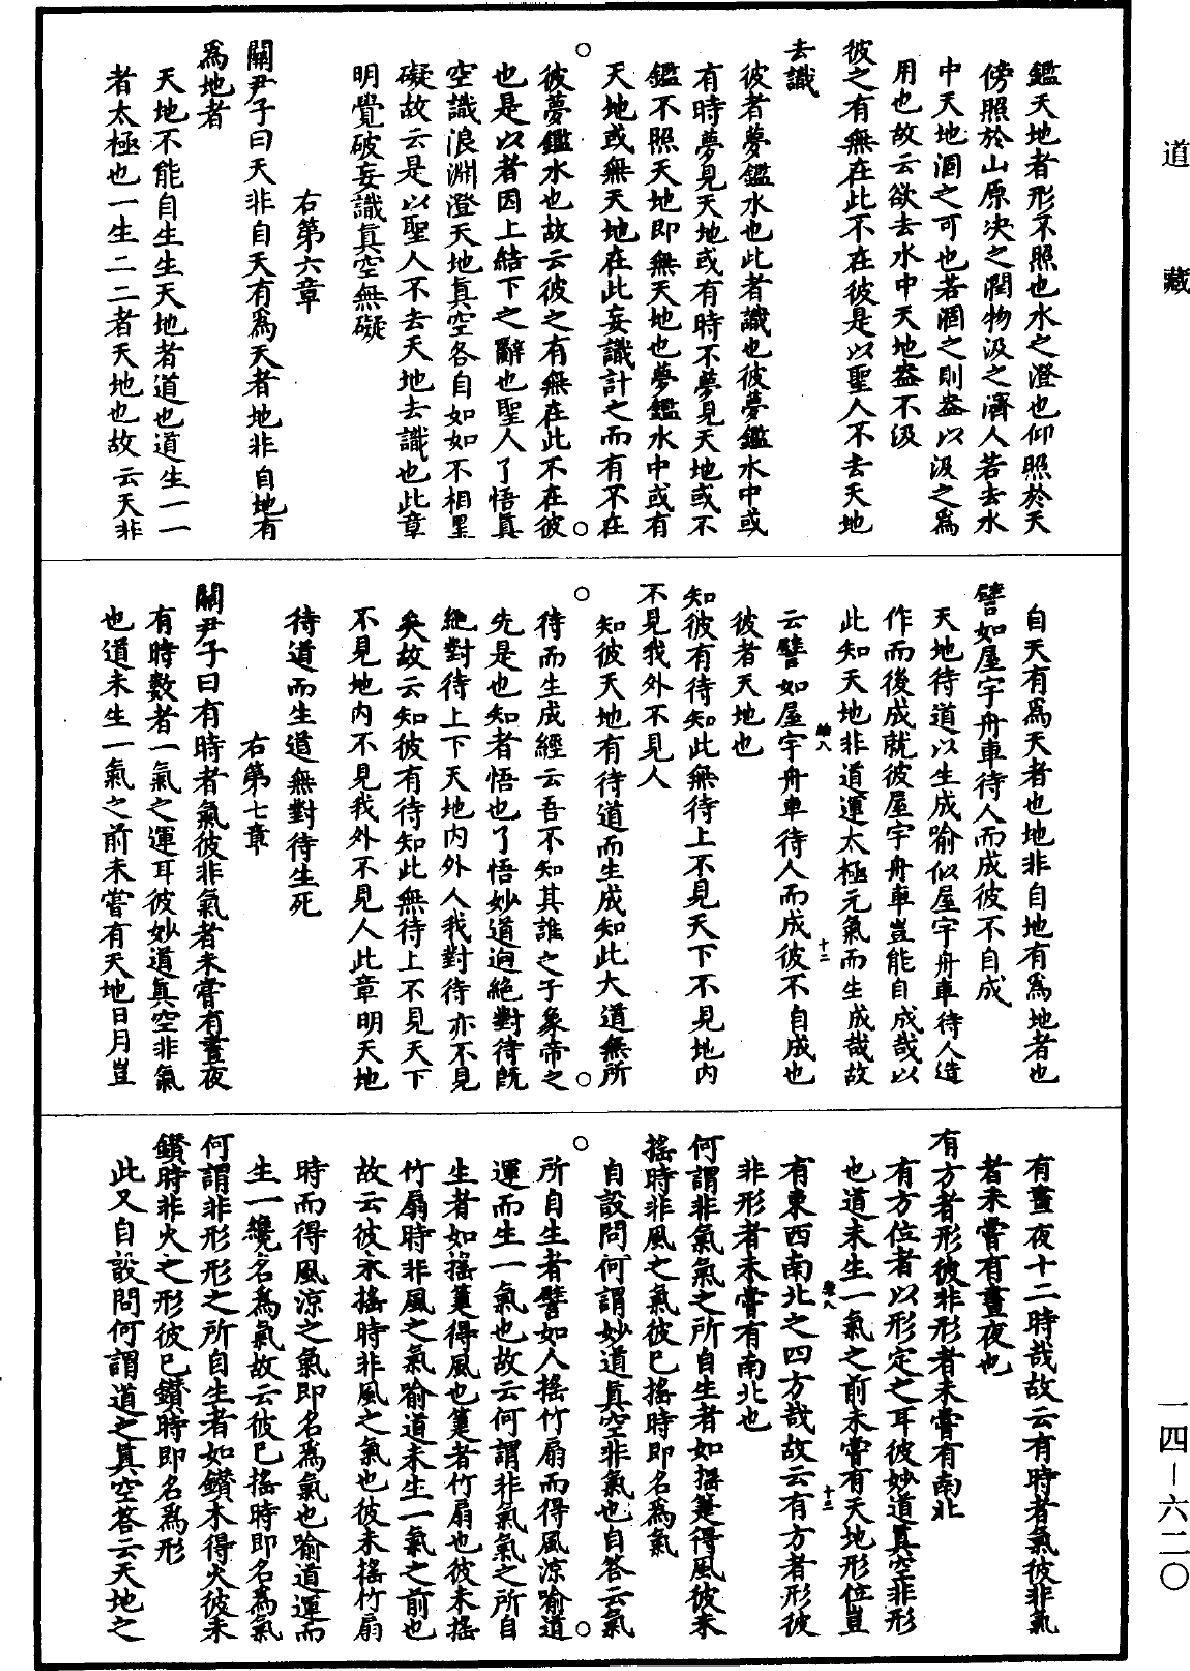 道藏
鑑天地者形不照也水之澄也仰照於天
傍照於山原決之潤物汲之濟人若去水
中天地涸之可也若涸之則盎以汲之為
用也故云欲去水中天地盎不汲
彼之有無在此不在彼是以聖人不去天地
去識
彼者夢鑑水也此者識也彼夢鑑水中或
有時夢見天地或有時不夢見天地或不
鑑不照天地即無天地也夢鑑水中或有
天地或無天地在此妄識計之而有不在
彼夢鑑水也故云彼之有無在此不在彼
也是以者因上結下之辭也聖人了悟真
空識浪淵澄天地真空各自如如不相罣
礙故云是以聖人不去天地去識也此章
明覺破妄識真空無礙
右第六章
關尹子曰天非自天有為天者地非自地有
為地者
天地不能自生生天地者道也道生一一
者太極也一生二二者天地也故云天非
自天有為天者也地非自地有為地者也
譬如屋宇舟車待人而成彼不自成
天地待道以生成喻似屋宇舟車待人造
作而後成就彼屋宇舟車豈能自成哉以
此知天地非道運太極元氣而生成哉故
云譬如屋宇舟車待人而成彼不自成也
彼者天地也
知彼有待知此無待上不見天下不見地內
不見我外不見人
知彼天地有待道而生成知此大道無所
待而生成經云吾不知其誰之子象帝之
先是也知者悟也了悟妙道迥絕對待既
絕對待上下天地內外人我對待亦不見
矣故云知彼有待知此無待上不見天下
不見地內不見我外不見人此章明天地
待道而生道無對待生死
右第七章
關尹子曰有時者氣彼非氣者未嘗有晝夜
有時數者一氣之運耳彼妙道真空非氣
也道未生一氣之前未嘗有天地日月豈
有晝夜十二時哉故云有時者氣彼非氣
者未嘗有晝夜也
有方者形彼非形者未嘗有南北
有方位者以形定之耳彼妙道真空非形
也道未生一氣之前未嘗有天地形位豈
有東西南北之四方哉故云有方者形彼
非形者未嘗有南北也
何謂非氣氣之所自生者如搖箑得風彼未
搖時非風之氣彼已搖時即名為氣
自設問何謂妙道真空非氣也自答云氣
所自生者譬如人搖竹扇而得風涼喻道
運而生一氣也故云何謂非氣氣之所自
生者如搖箑得風也箑者竹扇也彼未搖
竹扇時非風之氣喻道未生一氣之前也
故云彼未搖時非風之氣也彼未搖竹扇
時而得風涼之氣即名為氣也喻道運而
生一纔名為氣故云彼已搖時即名為氣
何謂非形形之所自生者如鑽木得火彼未
鑽時非火之形彼已鑽時即名為形
此又自設問何謂道之真空答云天地之
一四—六二〇